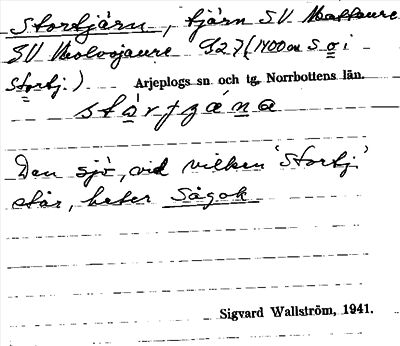 Stortjärn, tjärn SV Mattaure
SV Molvojaure S27 (1400 m S o i
Stortj.)
Arjeplogs sn. och tg. Norrbottens län.
Den sjö, vid vilken 'Stortj.'
står, heter Sågok
Sigvard Wallström, 1941.